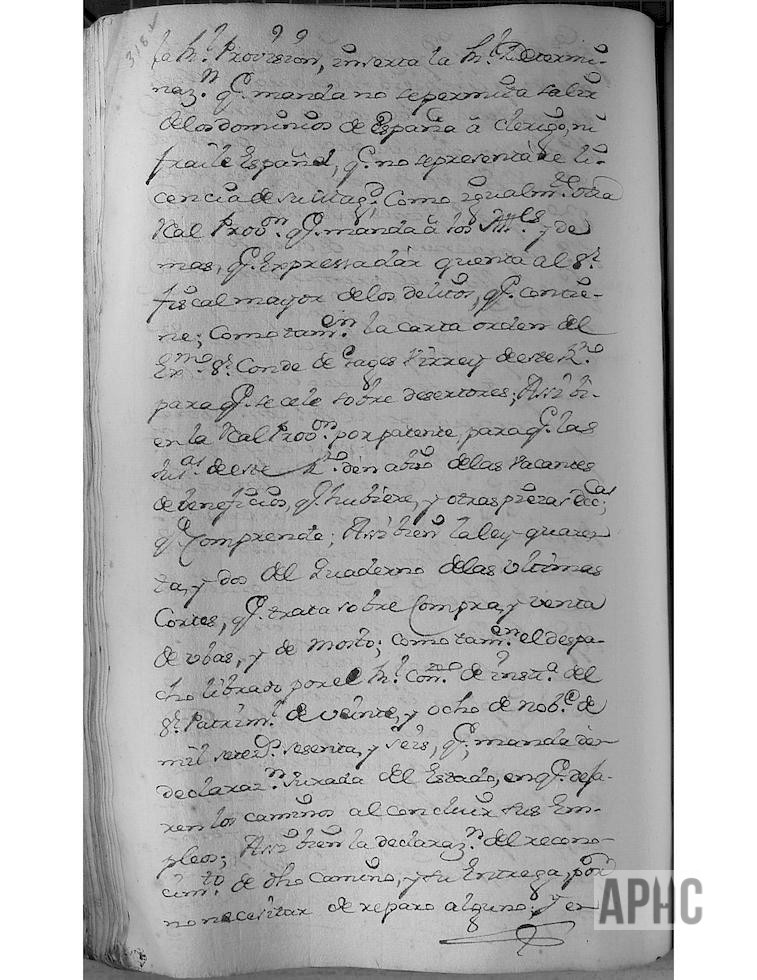 318
la Rˡ Provision, inserta la Rˡ Determi-
nazⁿ qᵉ manda no sepermita salir
delos dominios de España à clerigo, ni
fraile Español, qᵉ no sepresentáre li-
cencia de su Magᵈ Como igualmᵗᵉ otra
Real Provᵒⁿ qᵉ manda à los Allˡᵉˢ y de
mas, qᵉ Expressa dár quenta al Sʳ
fiscal mayor delos delitos, qᵉ contie-
ne; Como tamᵉⁿ la carta orden del
Exᵐᵒ Sʳ Conde de Gages Virrey deeste Rⁿᵒ
para qᵉ se cele sobre desertores; Assi bi-
en la Real Provᵒⁿ por patente, para qᵉ las
deeste Rⁿᵒ dèn abiso delas Vacantes
de beneficios, qᵉ hubiere, y otras piezas ecᶜᵃˢ
qᵉ Comprende; Assi bien la ley quaren
ta, y dos del Quaderno delas vltimas
Cortes, qᵉ trata sobre Compra, y venta
de vbas, y de Mosto; como tamᵉⁿ el despa-
cho librado por el Rˡ Conᵒ de instᵃ del
Sʳ Patrimˡ de veinte, y ocho de nobᵉ de
mil setezˢ sesenta, y seis, qᵉ manda dèn
declarazⁿ Jurada del Estado, en qᵉ defa-
ren los caminos al concluir sus Em-
pleos; Assi bien la declarazⁿ del recono-
cimᵗᵒ de dho Camino, y su Entrega, por
no necesitar de reparo alguno; y en
APHC